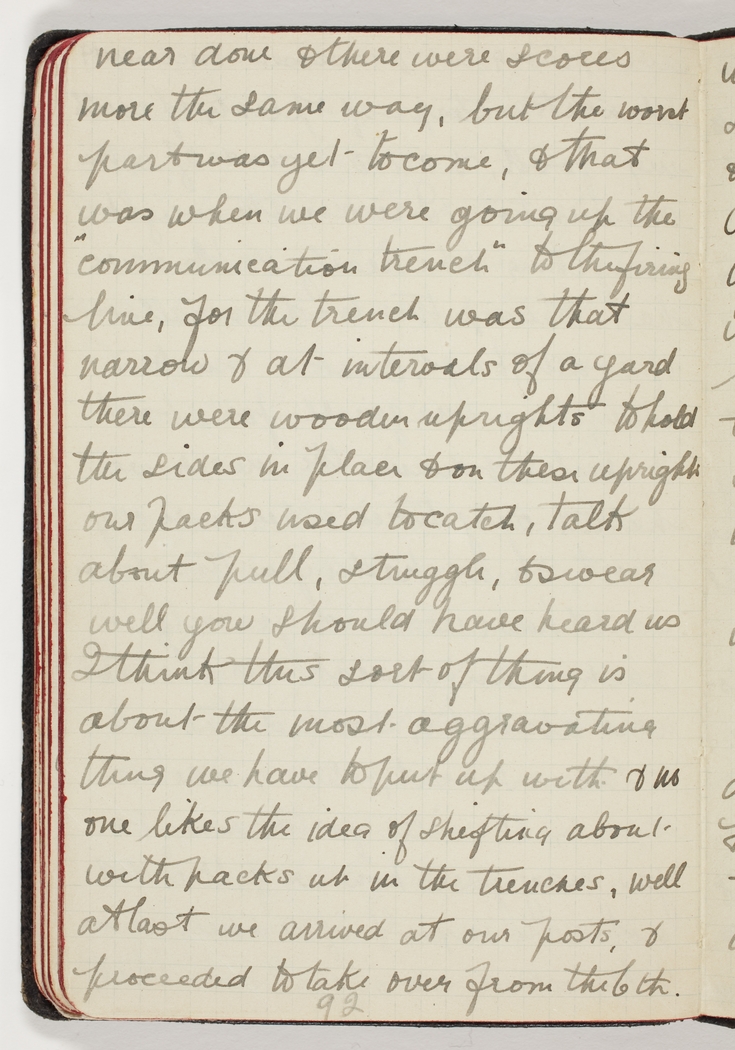 near done & there were scores
more the same way, but the worst
part was yet to come, & that
was when we were going up the
"communication trench" to the firing
line, for the trench was that
narrow & at intervals of a yard
there were wooden uprights to hold
the sides in place & on these uprights
our packs used to catch, talk
about pull, struggle, & swear
well you should have heard us
I think this sort of thing is
about the most aggravating
thing we have to put up with & no
one likes the idea of shifting about
with packs up in the trenches, well
at last we arrived at our posts, &
proceeded to take over from the 6th.
92